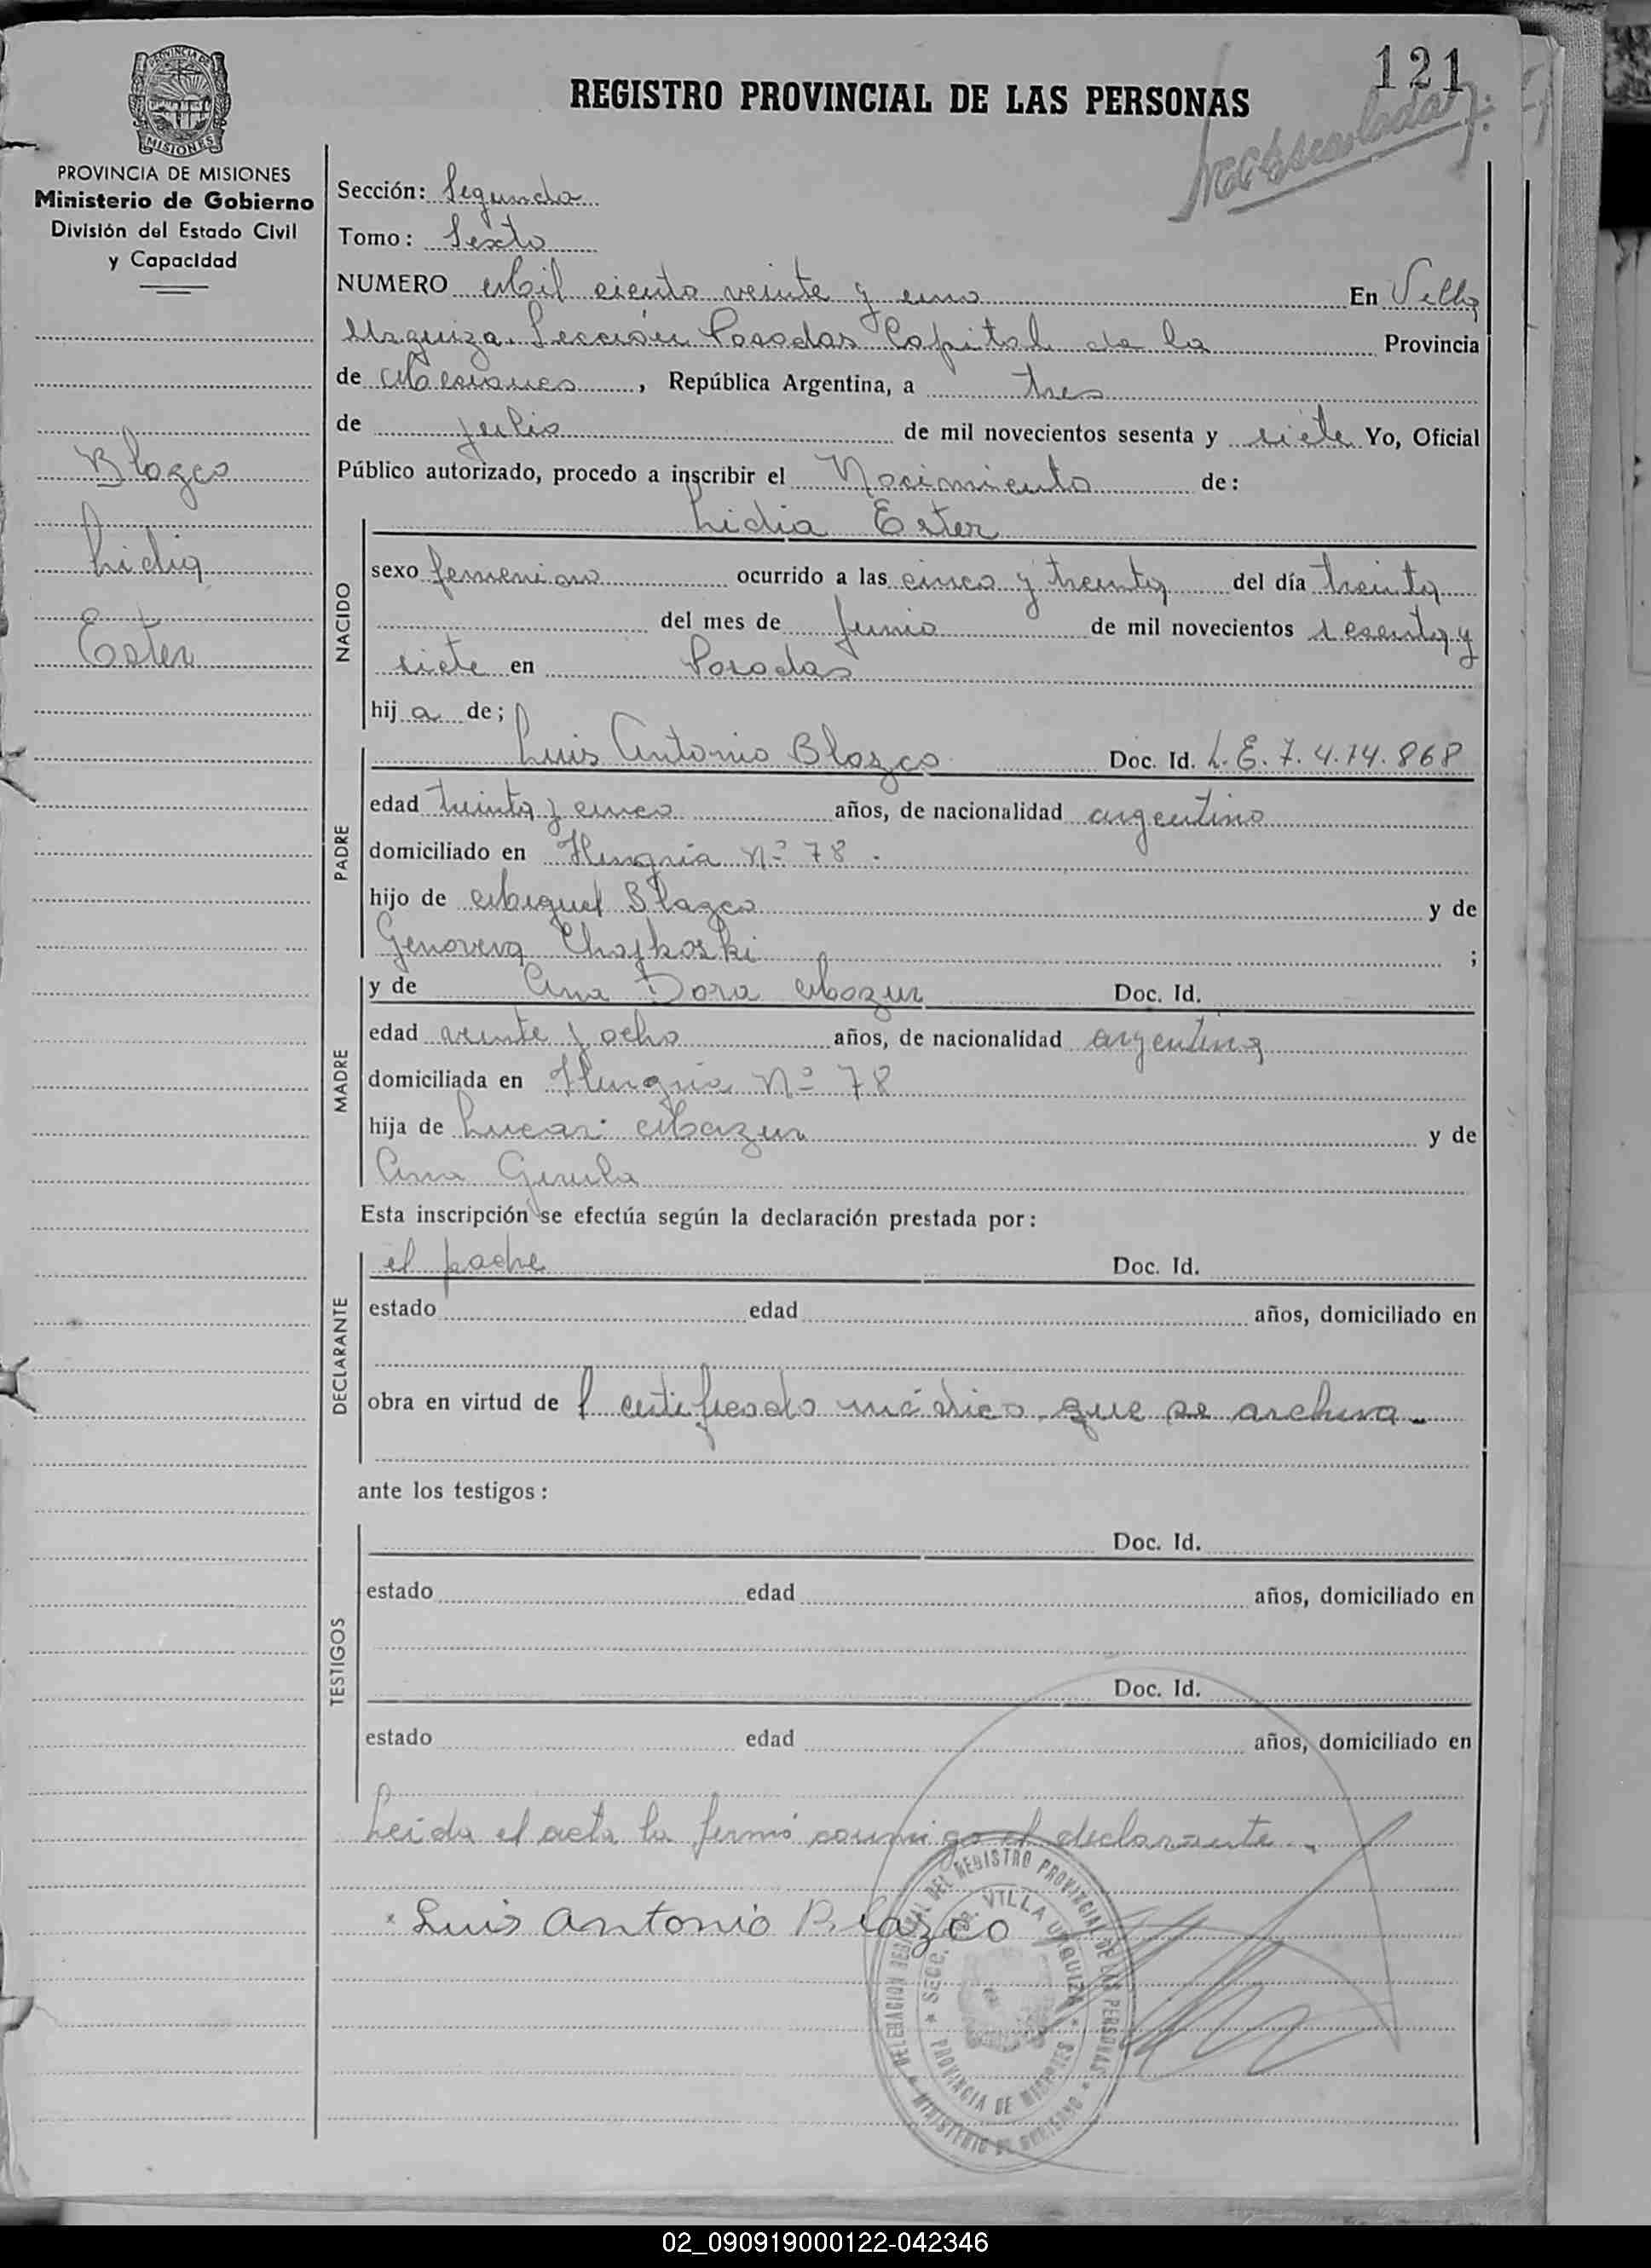 121
REGISTRO PROVINCIAL DE LAS PERSONAS
PROVINCIA DE MISIONES
PROVINCIA DE MISIONES
Ministerio de Gobierno
División del Estado Civil
y Capacidad
Blazco
Lidia
Ester
Sección: Segunda
Tomo: Sexto
NUMERO Mil ciento veinte y uno En Villa
Urquiza. Sección Posadas Capital de la Provincia
de Misiones, República Argentina, a tres
de julio de mil novecientos sesenta y siete Yo, Oficial
Público autorizado, procedo a inscribir el Nacimiento de:
NACIDO
Lidia Ester
sexo femenino ocurrido a las cinco y treinta del día treinta
del mes de Junio de mil novecientos sesenta y
siete en Posadas
hij a de;
PADRE
Luis Antonio Blazco Doc. Id. L.E. 7.4.14.868
edad treinta y cinco años, de nacionalidad argentino
domiciliado en Hungria Nº 78.
hijo de Miguel Blazco y de
Genoveva Chajkoski ;
MADRE
y de Ana Dora Mazur Doc. Id.
edad veinte y ocho años, de nacionalidad argentina
domiciliada en Hungria Nº 78
hija de Lucas Mazur y de
Ana Girula
Esta inscripción se efectúa según la declaración prestada por:
DECLARANTE
el padre Doc. Id.
estado edad años, domiciliado en
obra en virtud de l certificado médico que se archiva.
ante los testigos:
TESTIGOS
Doc. Id.
estado edad años, domiciliado en
Doc. Id.
estado edad años, domiciliado en
Leida el acta la firmó conmigo el declarante.
Luis Antonio Blazco
DELEGACION REGIONAL DEL REGISTRO PROVINCIAL DE LAS PERSONAS
SECC. VILLA URQUIZA
PROVINCIA DE MISIONES
MINISTERIO DE GOBIERNO
02_090919000122-042346